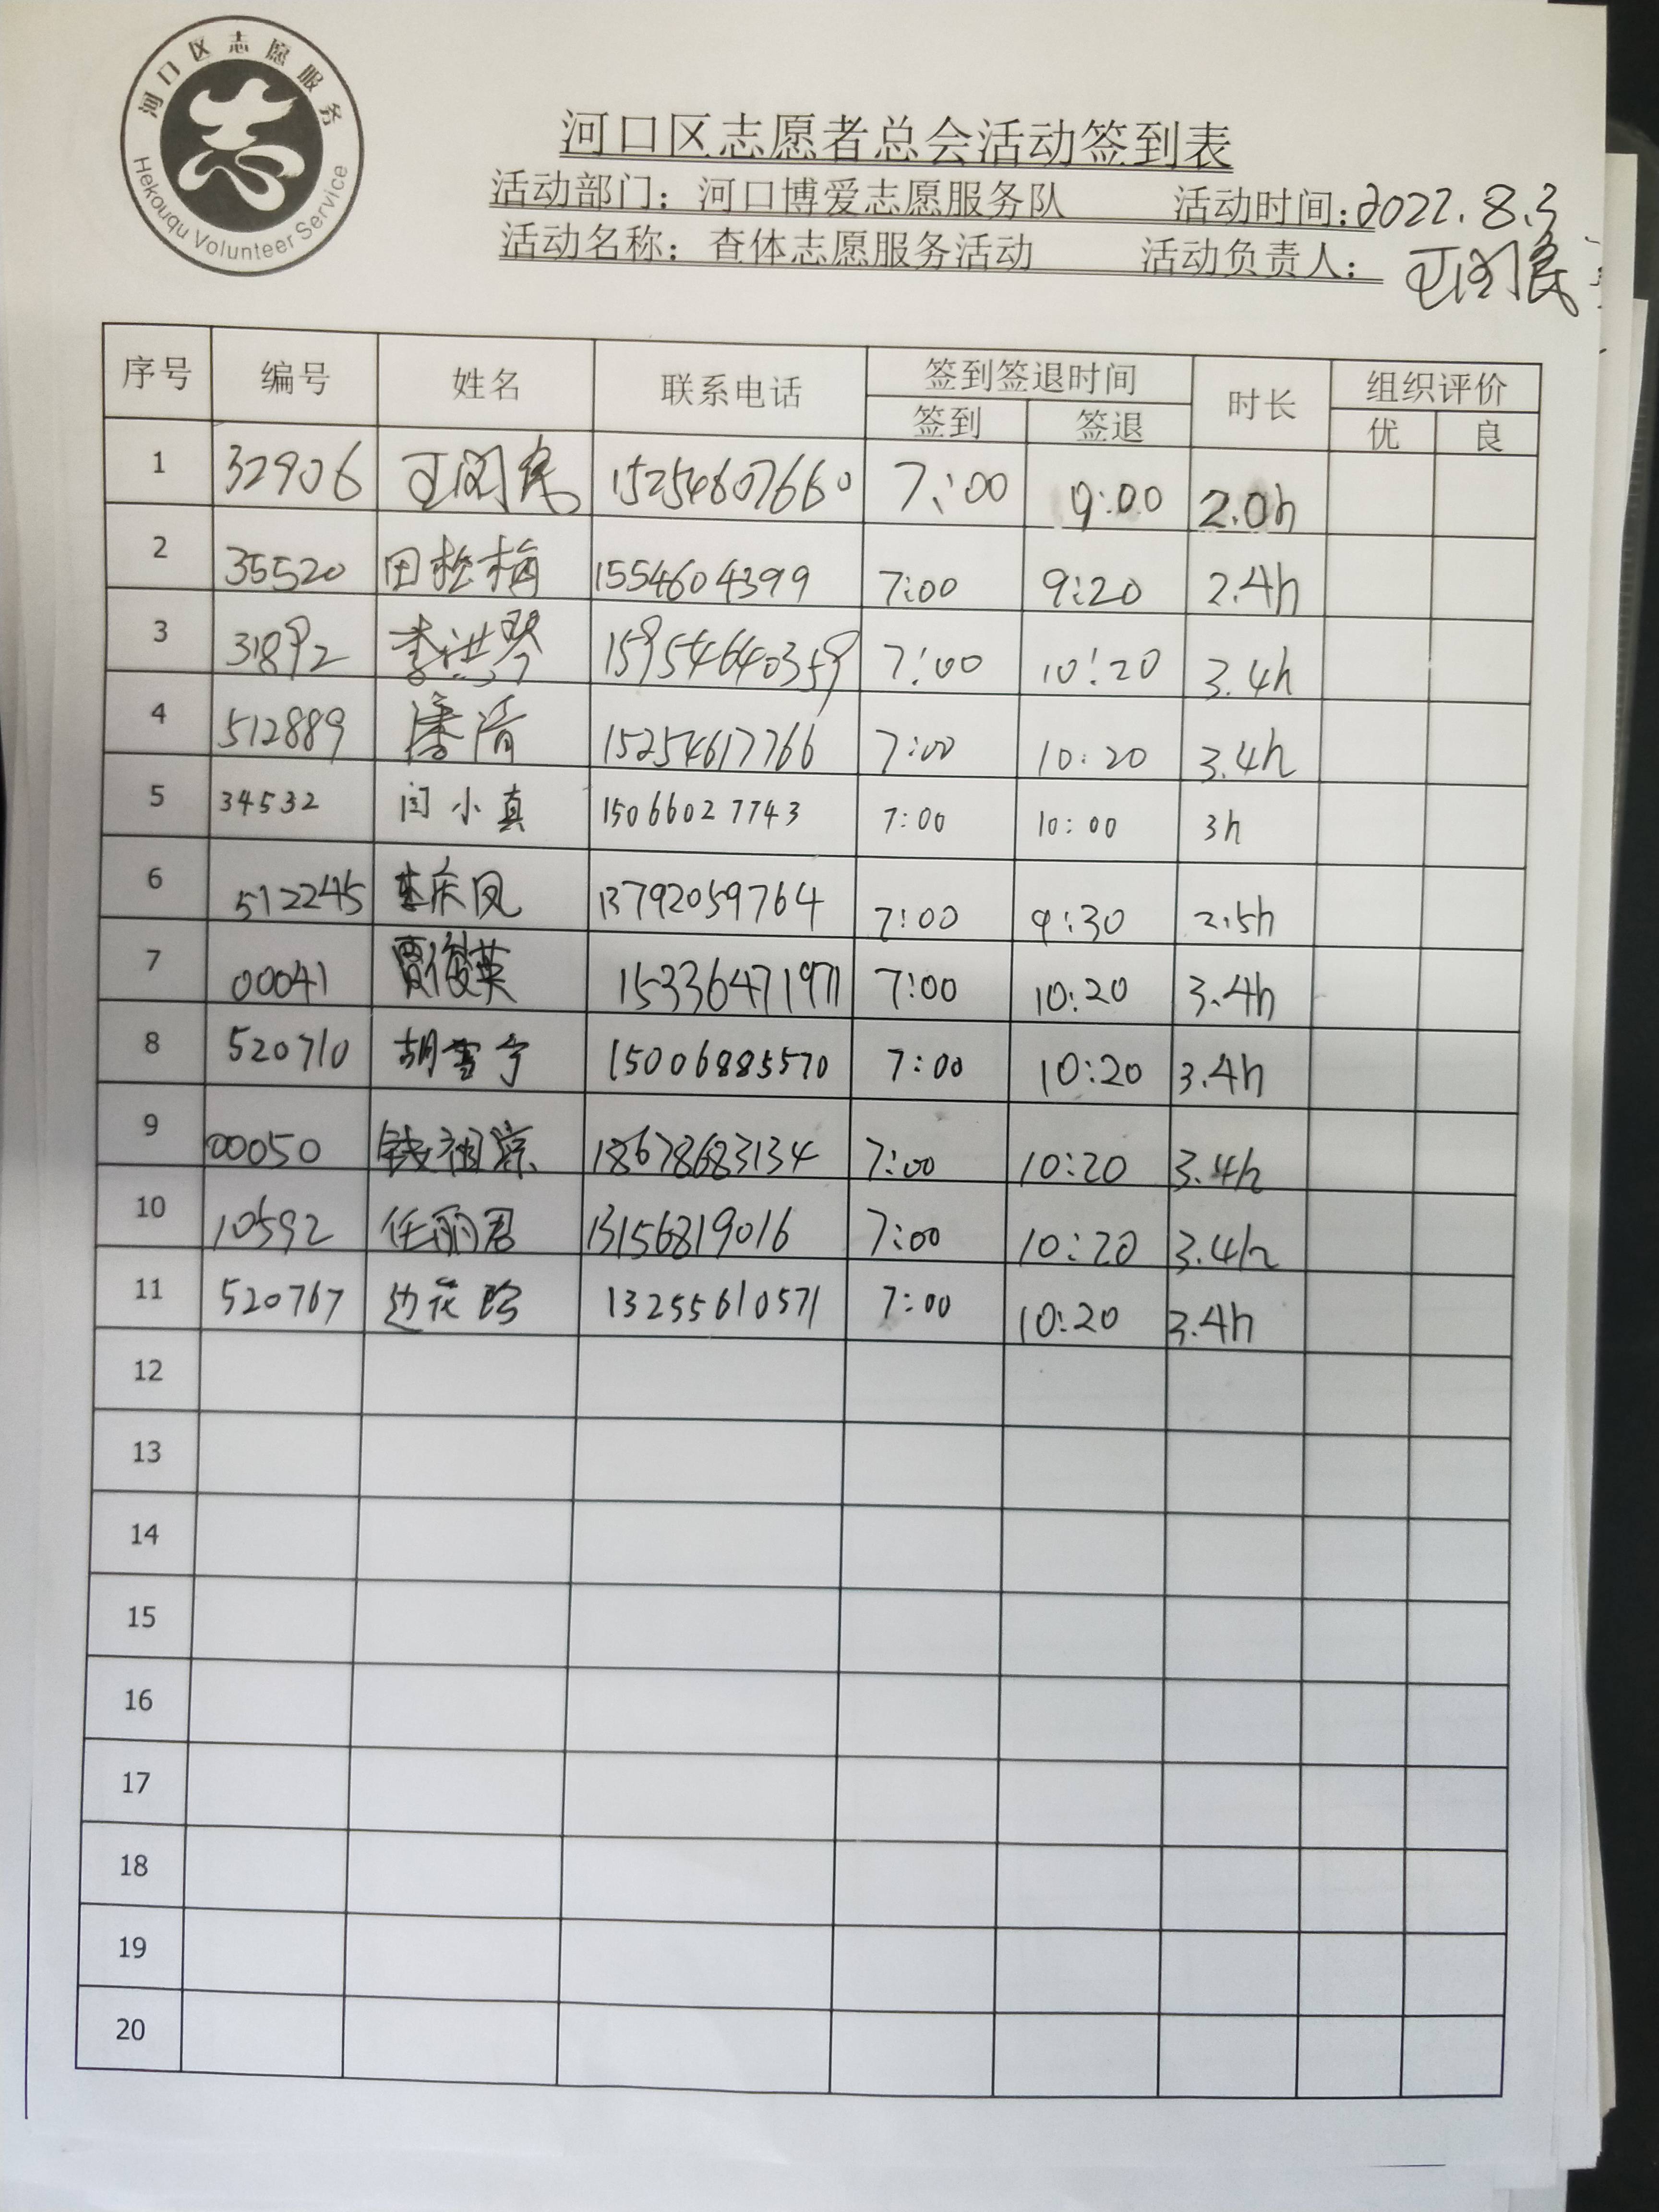 河口区志愿服务
Hekouqu Volunteer Service
河口区志愿者总会活动签到表
活动部门：河口博爱志愿服务队 活动时间：2022.8.3
活动名称：查体志愿服务活动 活动负责人：
序号 编号 姓名 联系电话 签到签退时间 时长 组织评价
签到 签退 优 良
1 32906 15254607660 7:00 9:00 2.0h
2 35520 田松梅 1554604399 7:00 9:20 2.4h
3 31892 李洪琴 15954640359 7:00 10:20 3.4h
4 512889 潘清 15254617766 7:00 10:20 3.4h
5 34532 闫小真 15066027743 7:00 10:00 3h
6 512245 李庆凤 13792059764 7:00 9:30 2.5h
7 00041 贾俊英 15336471971 7:00 10:20 3.4h
8 520710 胡雪宁 15006885570 7:00 10:20 3.4h
9 00050 钱祖 18678683134 7:00 10:20 3.4h
10 10592 任丽君 13156819016 7:00 10:20 3.4h
11 520767 边花 13255610571 7:00 10:20 3.4h
12
13
14
15
16
17
18
19
20